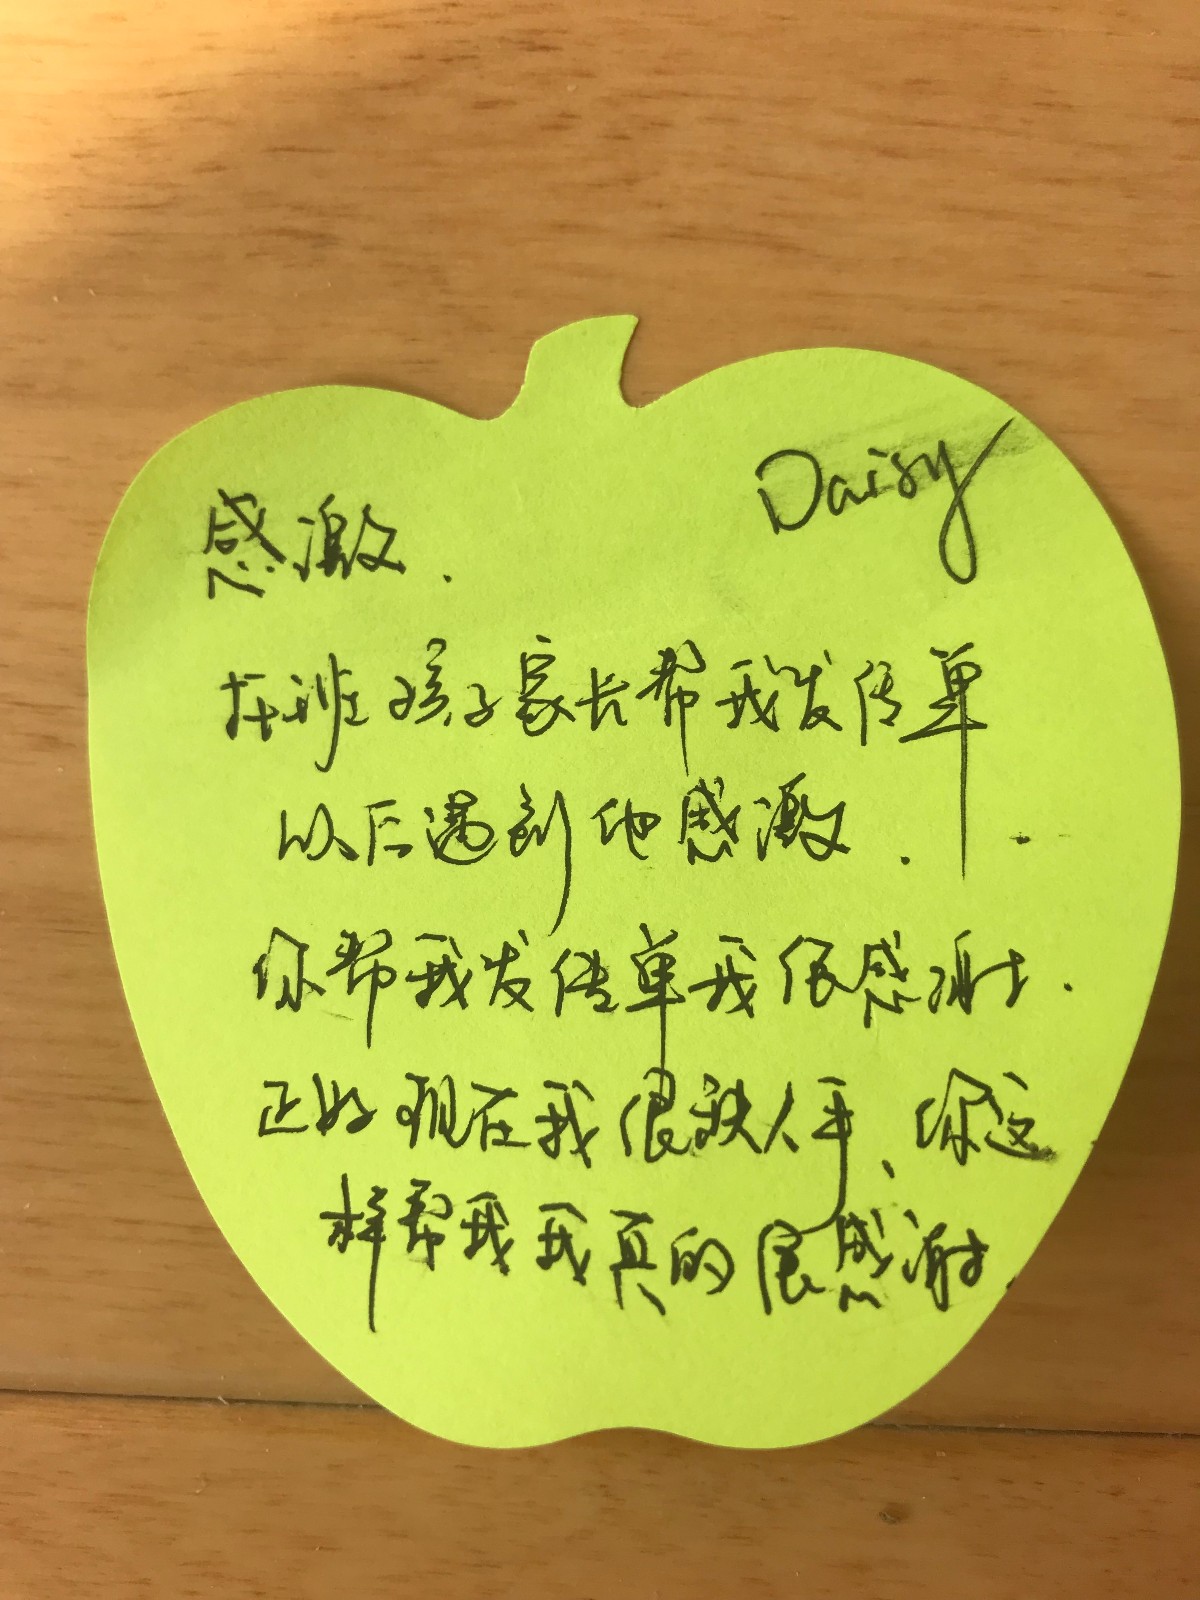 Daisy
感激.
在班孩子家长帮我发传单
以后遇到他感激.
你帮我发传单我很感谢.
正好现在我很缺人手、你这
样帮我我真的很感谢.